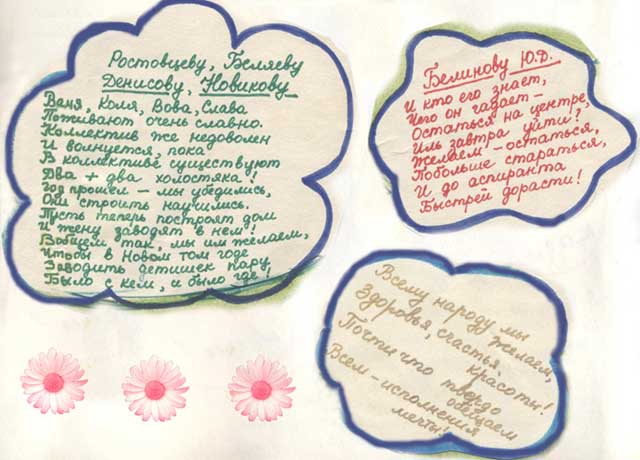 Ростовцеву, Беляеву
Денисову, Новикову
Ваня, Коля, Вова, Слава
Поживают очень славно.
Коллектив же недоволен
И волнуется, пока
В коллективе существуют
Два + два холостяка!
Год прошел – мы убедились,
Они строить научились.
Пусть теперь построят дом
И жену заводят в нем!
Вобщем так, мы им желаем,
Чтобы в Новом том годе
Заводить детишек пару,
Было с кем, и было где!
Белинову Ю.Д.
И кто его знает,
Чего он гадает –
Остаться на центре,
Иль завтра уйти?
Желаем – остаться,
Побольше стараться,
И до аспиранта
Быстрей дорасти!
Всему народу мы
желаем,
Здоровья, счастья,
красоты!
Почти что твердо
обещаем
Всем – исполнения
мечты!